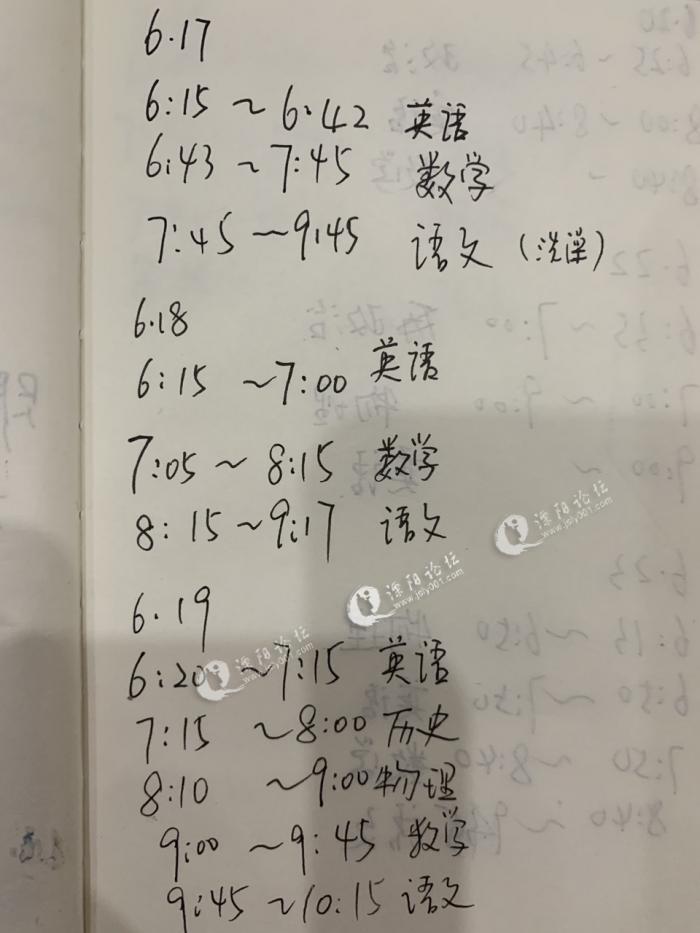 6.17
6:15 ~ 6:42 英语
6:43 ~ 7:45 数学
7:45 ~ 9:45 语文 (洗澡)
6.18
6:15 ~ 7:00 英语
7:05 ~ 8:15 数学
8:15 ~ 9:17 语文
溧阳论坛
www.jsly001.com
溧阳论坛
www.jsly001.com
6.19
溧阳论坛
www.jsly001.com
6:20 ~ 7:15 英语
7:15 ~ 8:00 历史
8:10 ~ 9:00 物理
9:00 ~ 9:45 数学
9:45 ~ 10:15 语文